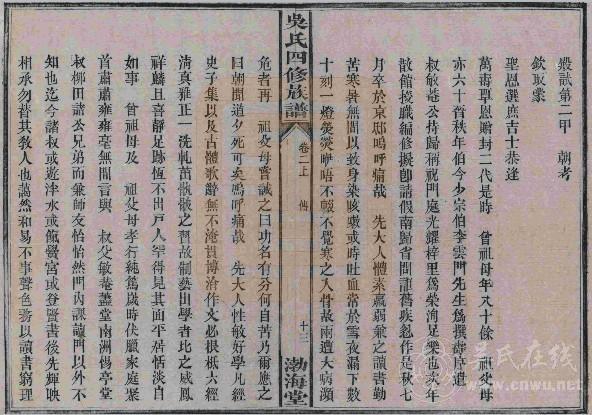 殿試第二甲　朝考
欽取蒙
聖恩選庶吉士恭逢
萬壽覃恩貤封二代是時　曾祖母年八十餘　祖父母
亦六十晉秩年伯今少宗伯李雲門先生爲撰壽序遣
叔敏菴公持歸稱祝門庭光耀梓里爲榮洵足樂也次年
散館授職編修擬卽請假南歸省問詎舊疾忽作是秋七
月卒於京邸嗚呼痛哉　先大人體素羸弱兼之讀書勤
苦寒暑無間以致身染咳嗽或時吐血常於雪夜漏下數
十刻一燈熒熒咿唔不輟不覺寒之入骨故兩遭大病瀕
吳氏四修族譜
卷二上　傳
十三
渤海堂
危者再　祖父母嘗誡之曰功名有分何自苦乃爾應之
曰朝聞道夕死可矣嗚呼痛哉　先大人性敏好學凡經
史子集以及古體歌辭無不淹貫博洽作文必根柢六經
清眞雅正一洗軋茁骫骳之習故制藝出學者比之威鳳
祥麟且喜靜足跡恆不出戶人罕得見其面平居恬淡自
如事　曾祖母及　祖父母孝行純篤歲時伏臘家庭聚
首肅肅雍雍毫無間言與　叔父敏菴藎堂南洲惕亭堂
叔柳田諸公兄弟而兼師友怡怡然門內課讀門以外不
知也迄今諸叔或遊泮水或餼黌宮或登賢書後先輝映
相承勿替其敎人也藹然和易不事聲色務以讀書窮理
吴氏在线
www.cnwu.net